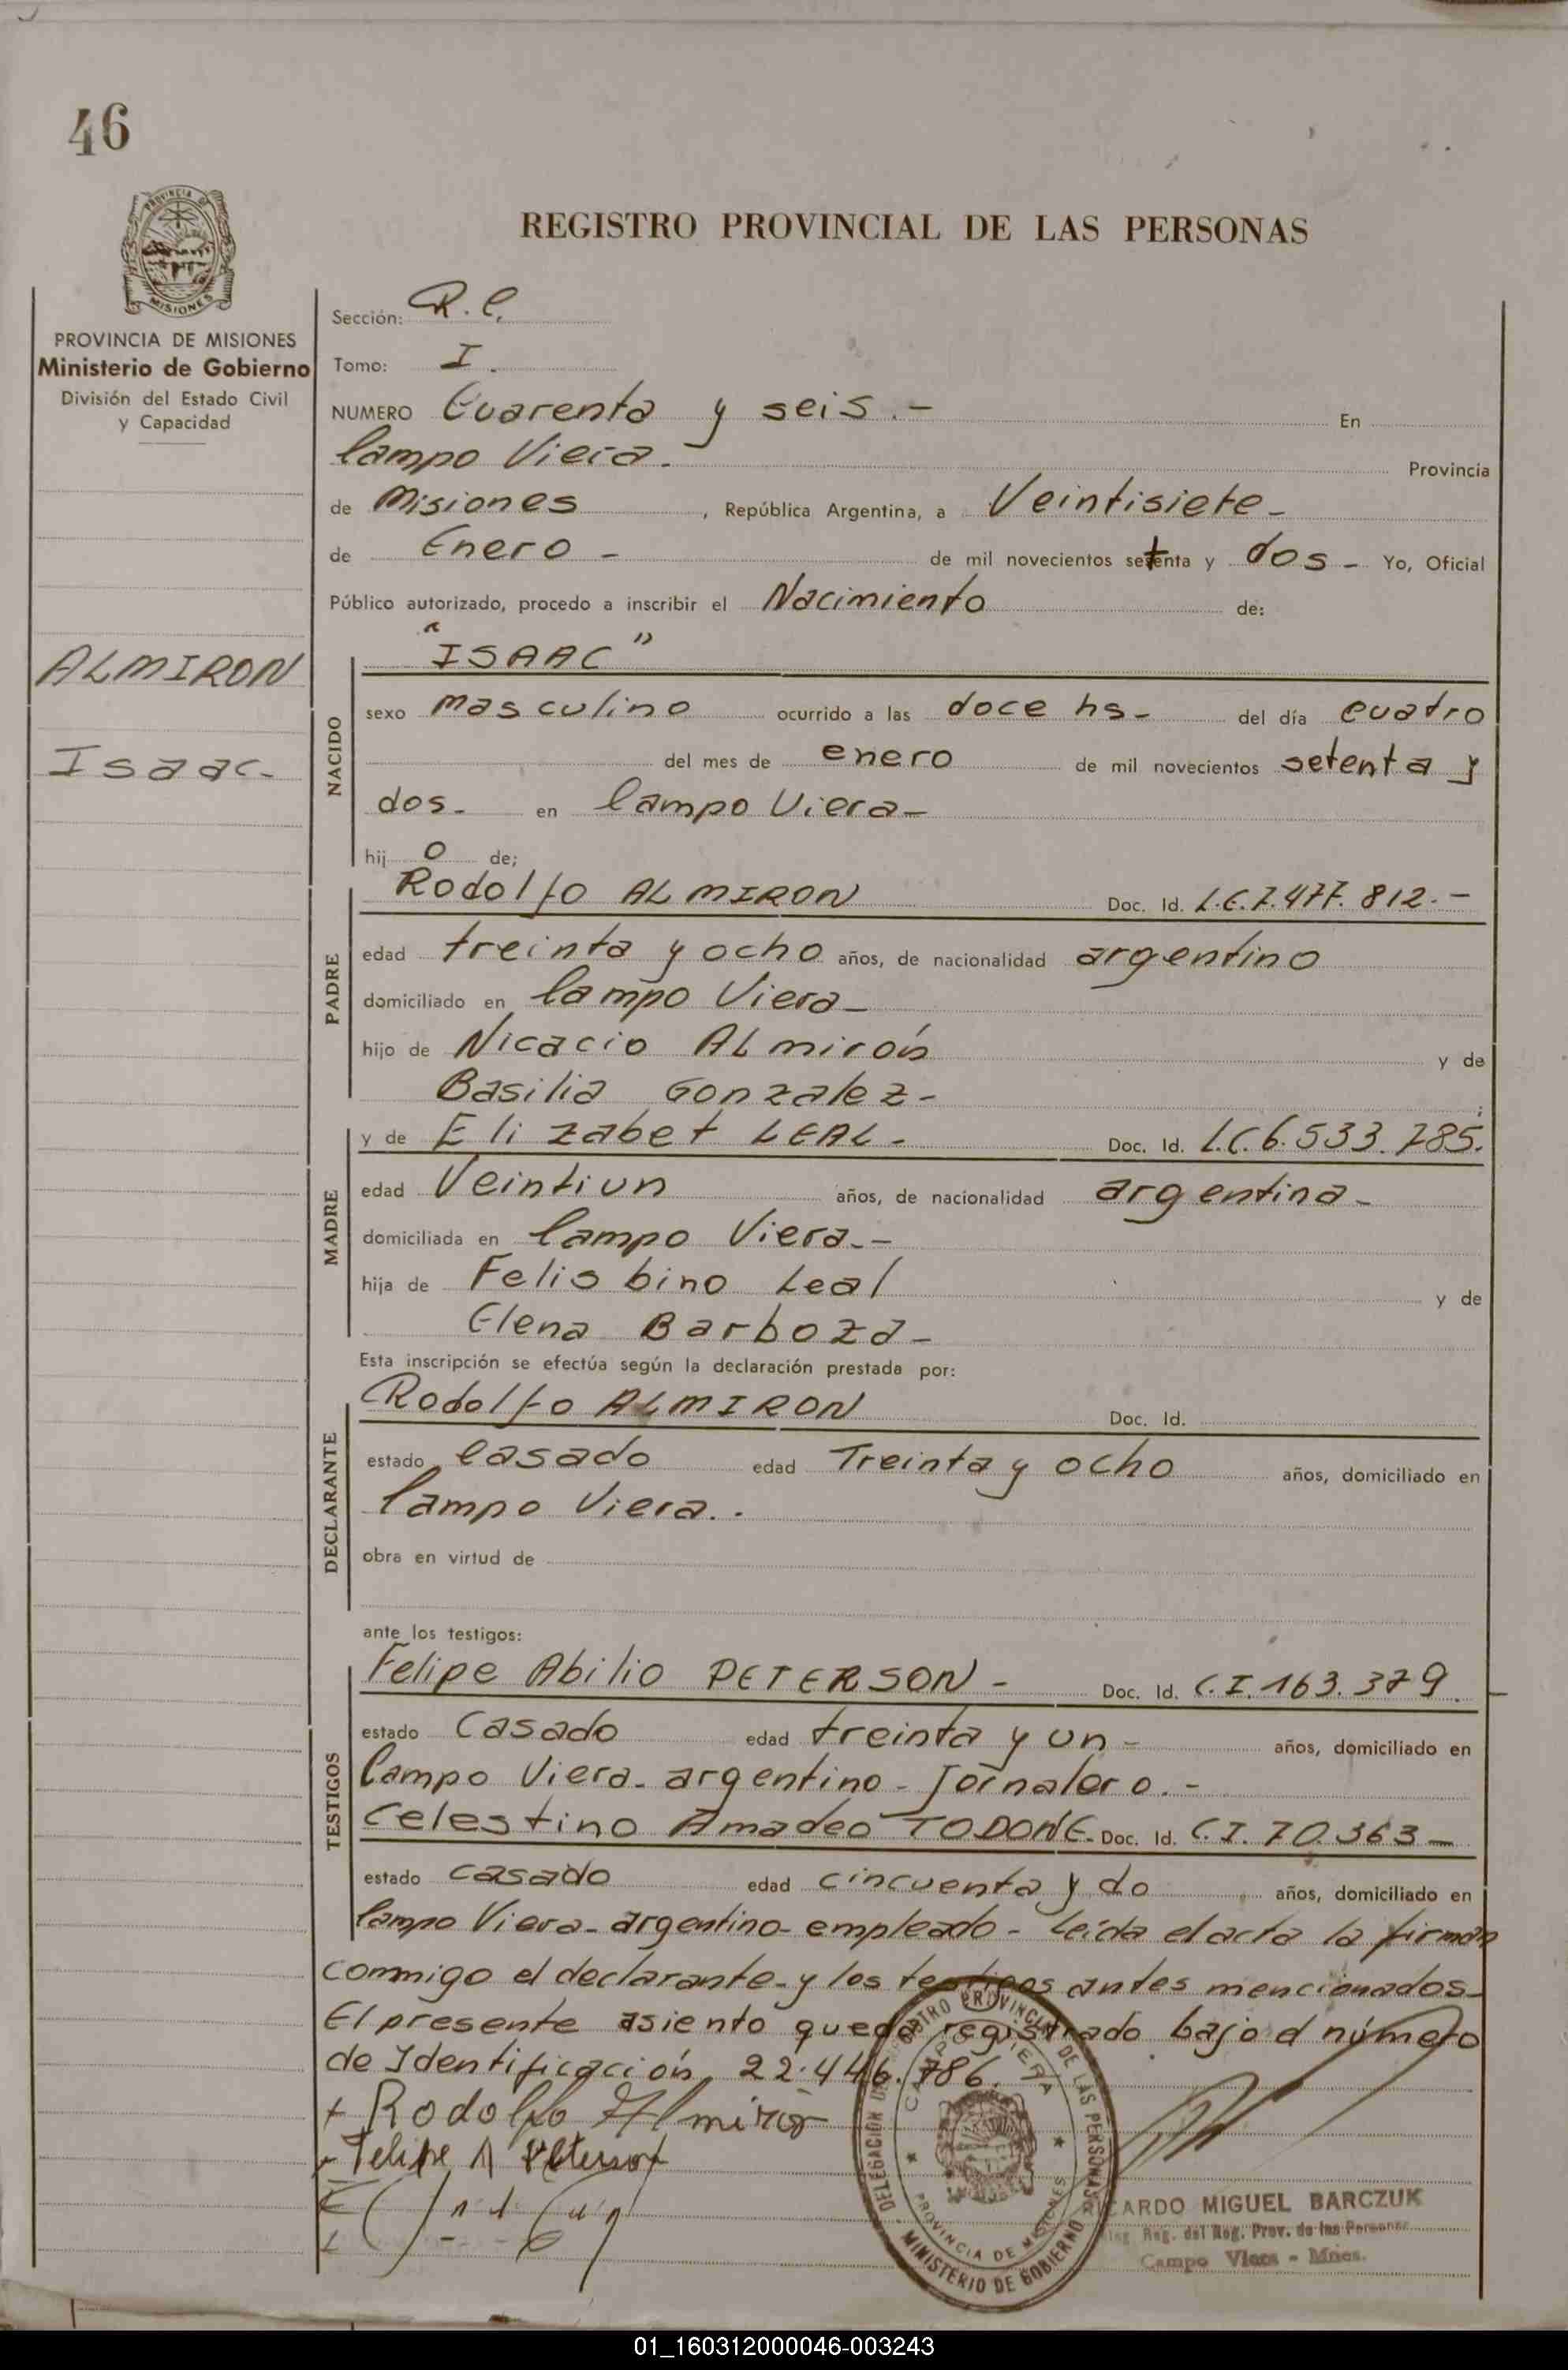 46
PROVINCIA DE
MISIONES
REGISTRO PROVINCIAL DE LAS PERSONAS
PROVINCIA DE MISIONES
Ministerio de Gobierno
División del Estado Civil
y Capacidad
ALMIRON
Isaac-
Sección: R.C.
Tomo: I.
NUMERO Cuarenta y seis.- En
Campo Viera. Provincia
de Misiones, República Argentina, a Veintisiete-
de Enero - de mil novecientos setenta y dos - Yo, Oficial
Público autorizado, procedo a inscribir el Nacimiento de:
"ISAAC"
NACIDO
sexo masculino ocurrido a las doce hs- del día cuatro
del mes de enero de mil novecientos setenta y
dos- en Campo Viera-
hij o de;
PADRE
Rodolfo ALMIRON Doc. Id. L.E.7.477.812.-
edad treinta y ocho años, de nacionalidad argentino
domiciliado en Campo Viera-
hijo de Nicacio ALmirón y de
Basilia Gonzalez- ;
MADRE
y de Elizabet LEAL- Doc. Id. L.C.6.533.785.
edad Veintiun años, de nacionalidad argentina-
domiciliada en Campo Viera.-
hija de Felisbino Leal y de
Elena Barboza-
Esta inscripción se efectúa según la declaración prestada por:
DECLARANTE
Rodolfo ALMIRON Doc. Id.
estado casado edad Treinta y ocho años, domiciliado en
Campo Viera..
obra en virtud de
ante los testigos:
TESTIGOS
Felipe Abilio PETERSON- Doc. Id. C.I.163.379.
estado casado edad treinta y un- años, domiciliado en
Campo Viera-argentino-Jornalero.-
Celestino Amadeo TODONE- Doc. Id. C.I. 70.363-
estado casado edad cincuenta y do años, domiciliado en
Campo Viera-argentino-empleado-Leída el acta la firman
conmigo el declarante-y los testigos antes mencionados-
El presente asiento queda registrado bajo el número
de Identificación 22.446.786.
+ Rodolfo Almirón
Felipe A Peterson
DELEGACION DEL REGISTRO PROVINCIAL DE LAS PERSONAS
CAMPO VIERA
PROVINCIA DE MISIONES
MINISTERIO DE GOBIERNO
RICARDO MIGUEL BARCZUK
Reg. del Reg. Prov. de las Personas
Campo Viera - Mnes.
01_160312000046-003243